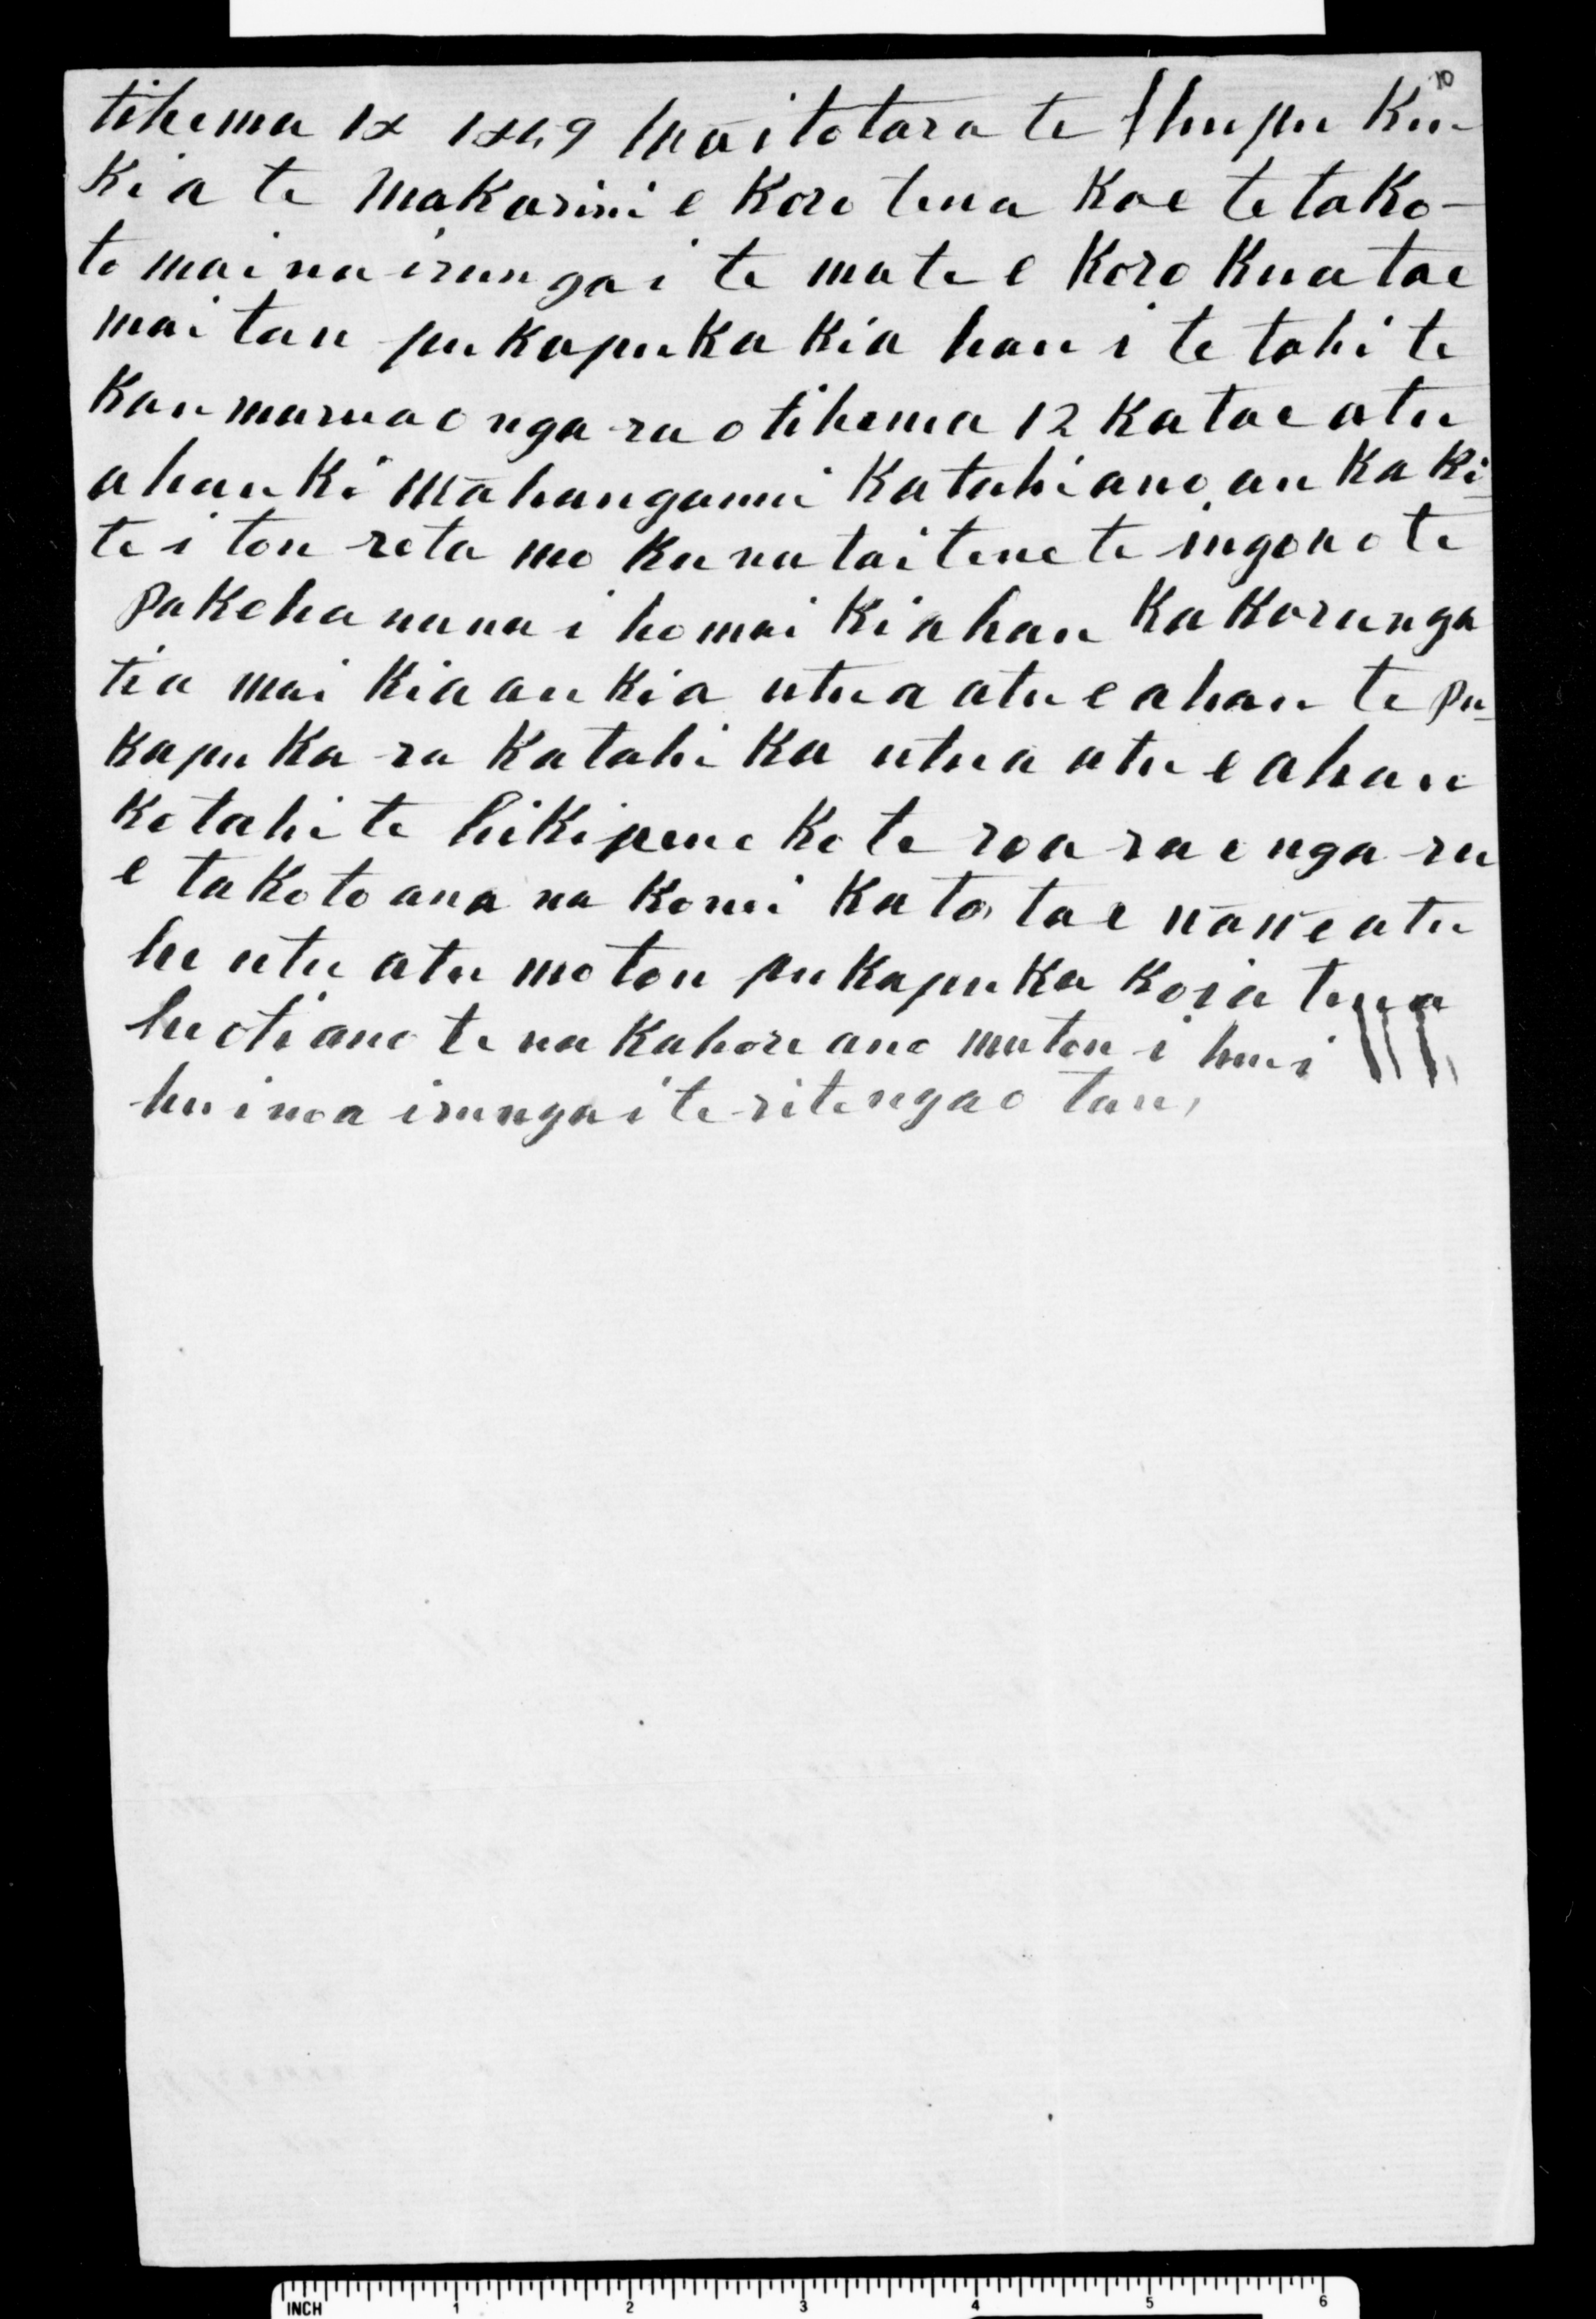 10
tihema 18 1849 Waitotara te Ihupu Ku-
Kia te Makarini e Koro tena Koe te tako-
to mai na i runga i te mate e Koro Kua tae
mai tau pukapuka Kia hau i te tahi te
Kau marua o nga ra o tihema 12 Ka tae atu
ahau Ki Wahanganui Katahi ano au Ka Ki-
te i tou reta mo Ku na tai tene te ingoa o te
Pakeha nana i homai Ki ahau Ka Korunga
tia mai Kia au Kia utua atu e ahau te pu-
kapuka ra Katahi Ka utua atu e ahau
Kotahi te hikipene Ko te roa ra o nga ra
e takoto ana na Konei Ka to tae wawe atu
he utu atu mo tou pukapuka Koia tena
he oti ano te na Kahore ano matou i hui
hui noa i runga i te ritenga o tau,
INCH 1 2 3 4 5 6